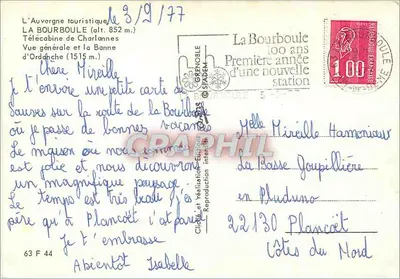 L'Auvergne touristique
LA BOURBOULE (alt. 852 m.)
Télécabine de Charlannes
Vue générale et la Banne
d'Ordanche (1515 m.)
le 3/9/77
Chère Mireille
Je t'envoie une petite carte de
Saurses sur la route de la Bourboule
où je passe de bonnes vacances
Le maison où nous sommes
est jolie et nous découvrons
un magnifique paysage
Le temps est très beau j'es
père qu'à Plancoët c'est pareil
Je t'embrasse
Abientôt Isabelle
63 F 44
GRENOBLE
SPADEM
Reproduction interdite
La Bourboule
100 ans
Première année
d'une nouvelle
station
1.00
Melle Mireille Hamoniaux
La Basse Joupillière
en Pluduno
22130 Plancoët
Côtes du Nord
PHIL